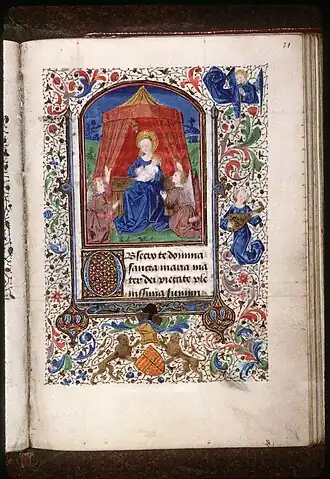 21
Obsecro te domina
sancta maria ma
ter dei pietate ple
nissima summi